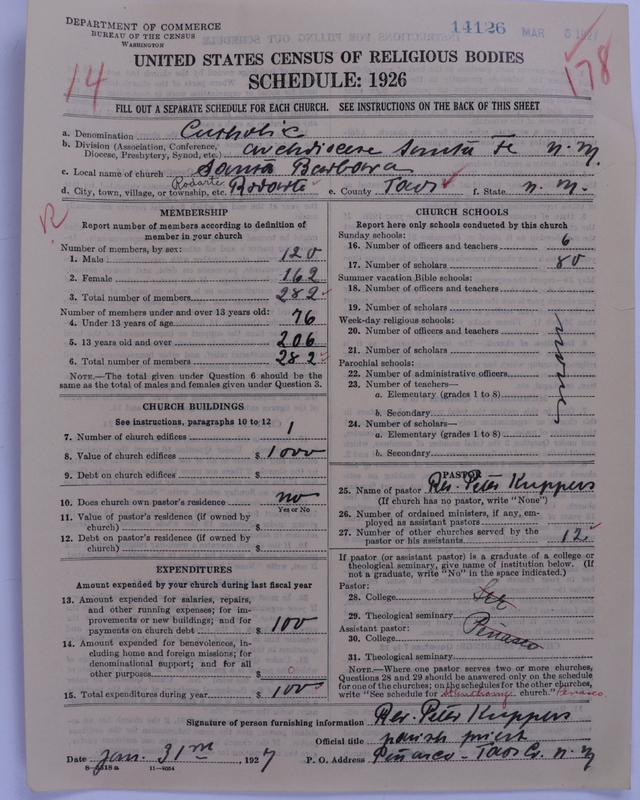 DEPARTMENT OF COMMERCE
BUREAU OF THE CENSUS
WASHINGTON
14126 MAR 3 1927
UNITED STATES CENSUS OF RELIGIOUS BODIES
SCHEDULE: 1926
14
178
FILL OUT A SEPARATE SCHEDULE FOR EACH CHURCH. SEE INSTRUCTIONS ON THE BACK OF THIS SHEET
a. Denomination Catholic
b. Division (Association, Conference, Diocese, Presbytery, Synod, etc.) archdiocese Santa Fe N. M.
c. Local name of church Santa Barbara
d. City, town, village, or township, etc. Rodarte Rodarte e. County Taos f. State N. M.
R
MEMBERSHIP
Report number of members according to definition of
member in your church
Number of members, by sex:
1. Male 120
2. Female 162
3. Total number of members 282
Number of members under and over 13 years old:
4. Under 13 years of age 76
5. 13 years old and over 206
6. Total number of members 282
NOTE.—The total given under Question 6 should be the
same as the total of males and females given under Question 3.
CHURCH BUILDINGS
See instructions, paragraphs 10 to 12
7. Number of church edifices 1
8. Value of church edifices $ 1000
9. Debt on church edifices $
10. Does church own pastor's residence no
Yes or No
11. Value of pastor's residence (if owned by
church) $
12. Debt on pastor's residence (if owned by
church) $
EXPENDITURES
Amount expended by your church during last fiscal year
13. Amount expended for salaries, repairs,
and other running expenses; for im-
provements or new buildings; and for
payments on church debt $ 100
14. Amount expended for benevolences, in-
cluding home and foreign missions; for
denominational support; and for all
other purposes $ 0
15. Total expenditures during year $ 100
CHURCH SCHOOLS
Report here only schools conducted by this church
Sunday schools:
16. Number of officers and teachers 6
17. Number of scholars 80
Summer vacation Bible schools:
18. Number of officers and teachers
19. Number of scholars
Week-day religious schools:
20. Number of officers and teachers
21. Number of scholars
none
Parochial schools:
22. Number of administrative officers
23. Number of teachers—
a. Elementary (grades 1 to 8)
b. Secondary
24. Number of scholars—
a. Elementary (grades 1 to 8)
b. Secondary
PASTOR
25. Name of pastor Rev. Peter Kuppers
(If church has no pastor, write "None")
26. Number of ordained ministers, if any, em-
ployed as assistant pastors
27. Number of other churches served by the
pastor or his assistants 12
If pastor (or assistant pastor) is a graduate of a college or
theological seminary, give name of institution below. (If
not a graduate, write "No" in the space indicated.)
Pastor:
28. College See
29. Theological seminary Peñasco
Assistant pastor:
30. College
31. Theological seminary
NOTE.—Where one pastor serves two or more churches,
Questions 28 and 29 should be answered only on the schedule
for one of the churches; on the schedules for the other churches,
write "See schedule for St Anthony church." Penasco
Signature of person furnishing information Rev. Peter Kuppers
Official title parish priest
Date Jan. 31st, 1927 P. O. Address Peñasco - Taos Co. N. M
8—5518a 11—8054